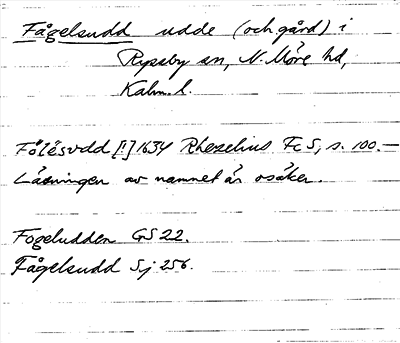 Fågelsudd udde (och gård) i
Ryssby sn, N. Möre hd,
Kalm. l.
Fölésvdd [!] 1634 Rhezelius FcS, s. 100.—
Läsningen av namnet är osäker.
Fogeludden GS 22.
Fågelsudd Sj 256.